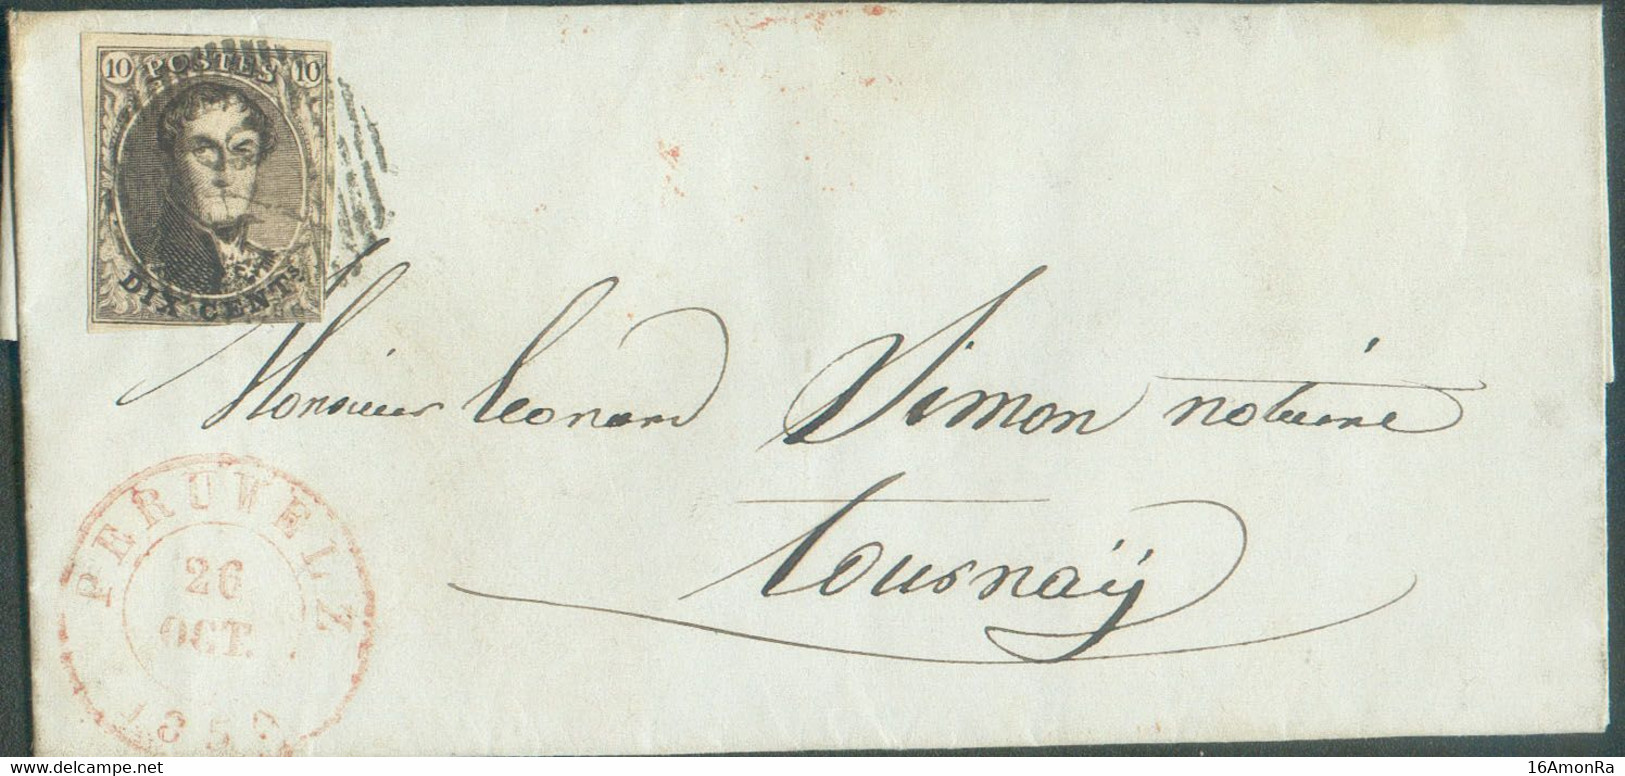 10 POSTES 10
DIX CENTS
Monsieur Leonard Simon notaire
Tournaÿ
PERUWELZ
26
OCT.
www.delcampe.net
16AmonRa